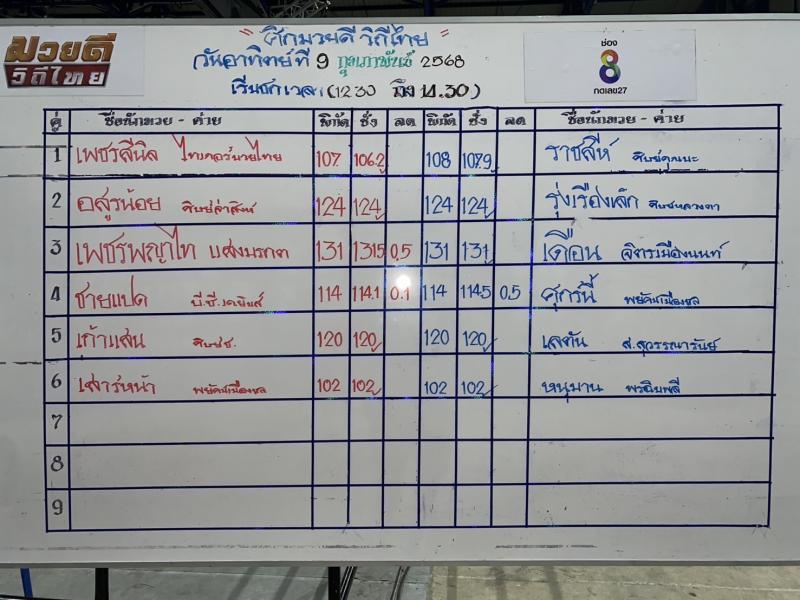 " ศึกมวยดี วิถีไทย "
วันอาทิตย์ ที่ 9 กุมภาพันธ์ 2568
เริ่มชกเวลา (12.30 ถึง 14.30)
มวยดี
วิถีไทย
ช่อง
8
กดเลข27
คู่ ชื่อนักมวย - ค่าย พิกัด ชั่ง ลด พิกัด ชั่ง ลด ชื่อนักมวย - ค่าย
1 เพชรสีนิล 107 106.2 108 107.9 ราชสีห์ ศิษย์คุณนะ
2 อสูรน้อย ศิษย์ล่าสิงห์ 124 124 124 124 รุ่งเรืองเล็ก ศิษย์หลวงตา
3 เพชรพญาไท แสงมรกต 131 131.5 0.5 131 131 เดือน จิตรเมืองนนท์
4 ชายแปด 114 114.1 0.1 114 114.5 0.5 ศุกร์นี้ พยัคฆ์เมืองชล
5 เก้าแสน ศิษย์ช. 120 120 120 120 เลตัน ส.สุวรรณารันย์
6 เสาร์หน้า พยัคฆ์เมืองชล 102 102 102 102 หนุมาน
7
8
9